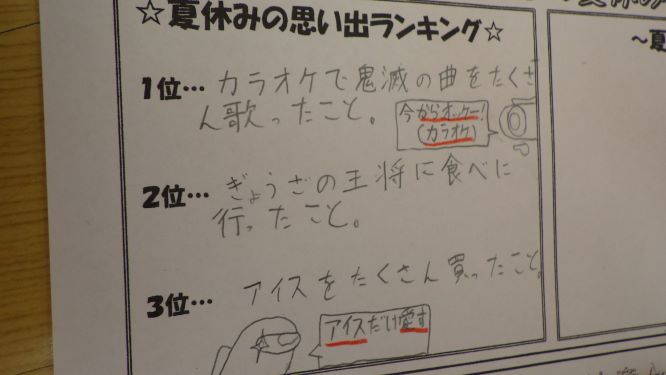 ☆夏休みの思い出ランキング☆
1位…カラオケで鬼滅の曲をたくさ
ん歌ったこと。
今からオッケー!
(カラオケ)
2位…ぎょうざの王将に食べに
行ったこと。
3位…アイスをたくさん買ったこと。
アイスだけ愛す
～夏